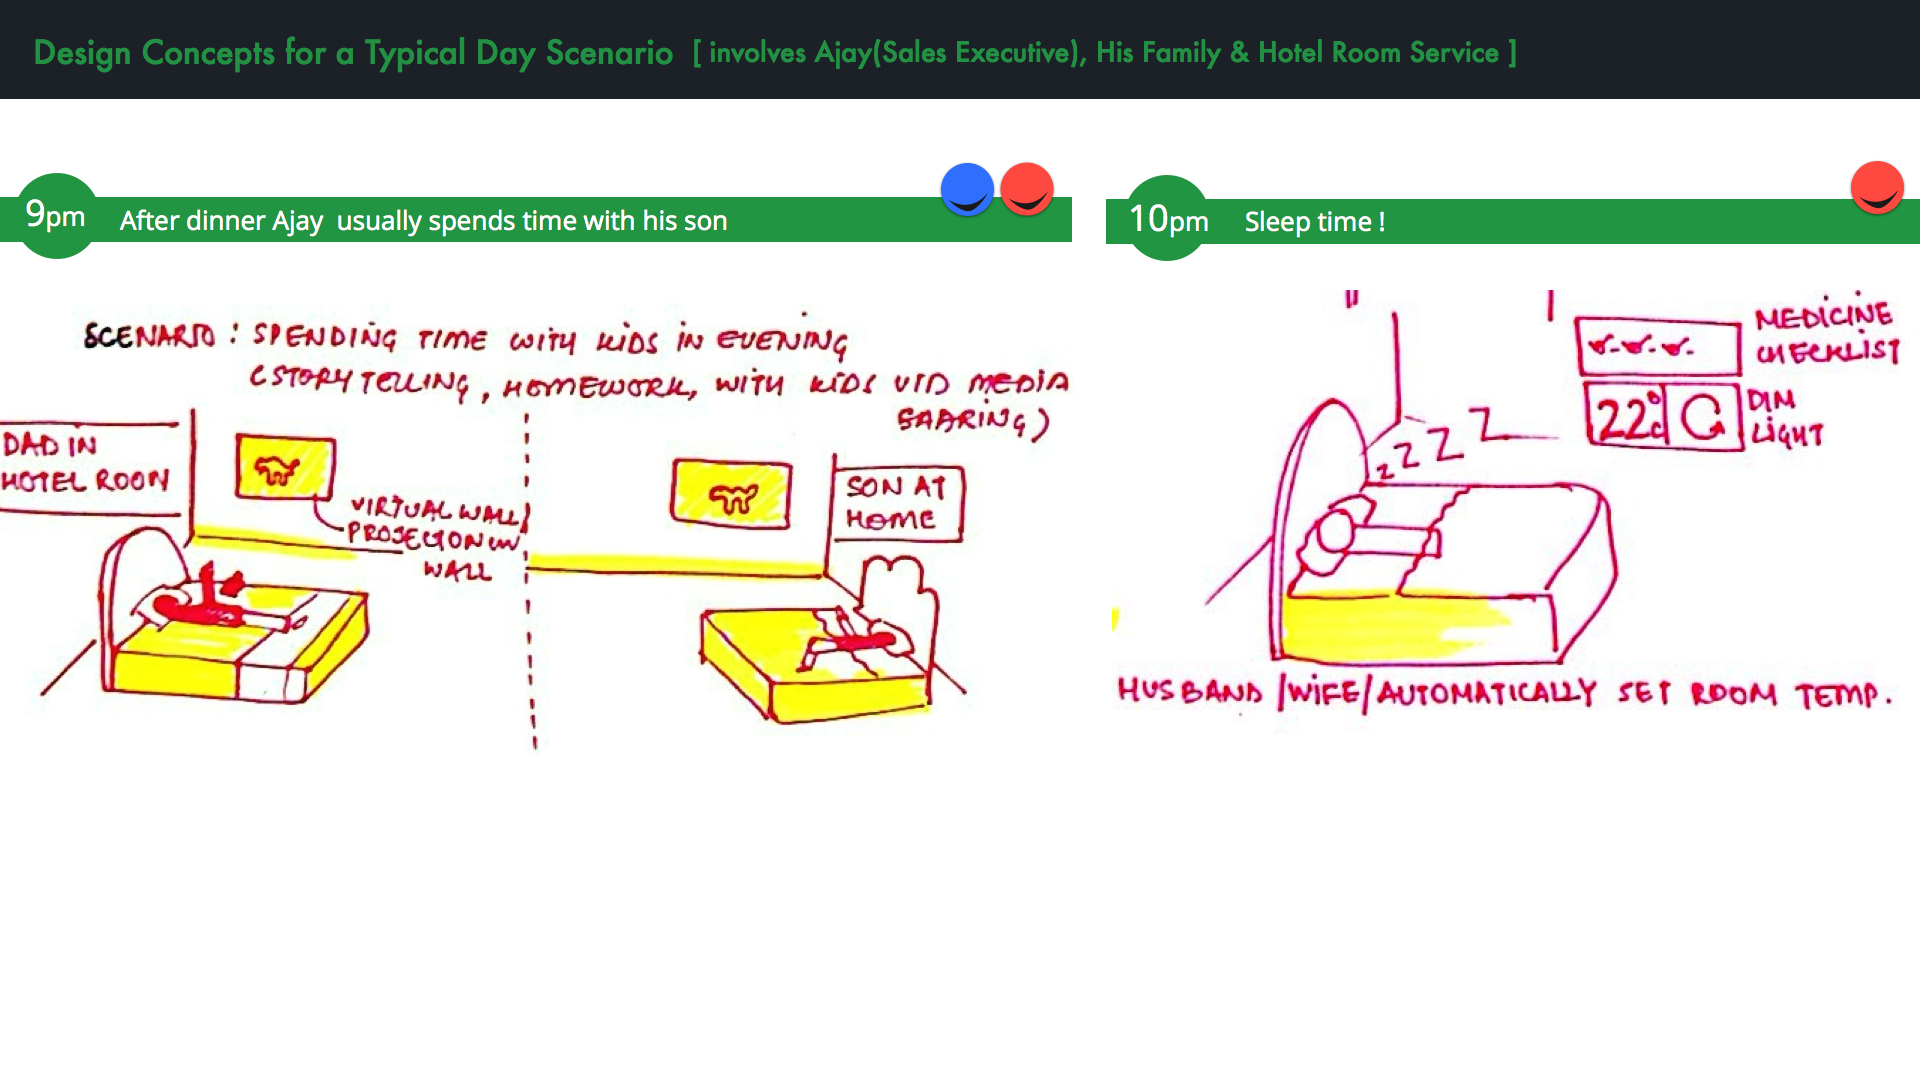 Design Concepts for a Typical Day Scenario [ involves Ajay(Sales Executive), His Family & Hotel Room Service ]
9pm After dinner Ajay usually spends time with his son
SCENARIO : SPENDING TIME WITH KIDS IN EVENING
(STORY TELLING, HOMEWORK, WITH KIDS VID MEDIA
SAARING)
DAD IN
HOTEL ROOM
VIRTUAL WALL/
PROJECTION ON
WALL
SON AT
HOME
10pm Sleep time !
MEDICINE
CHECKLIST
22°c
DIM
LIGHT
z z Z Z
HUSBAND /WIFE/AUTOMATICALLY SET ROOM TEMP.